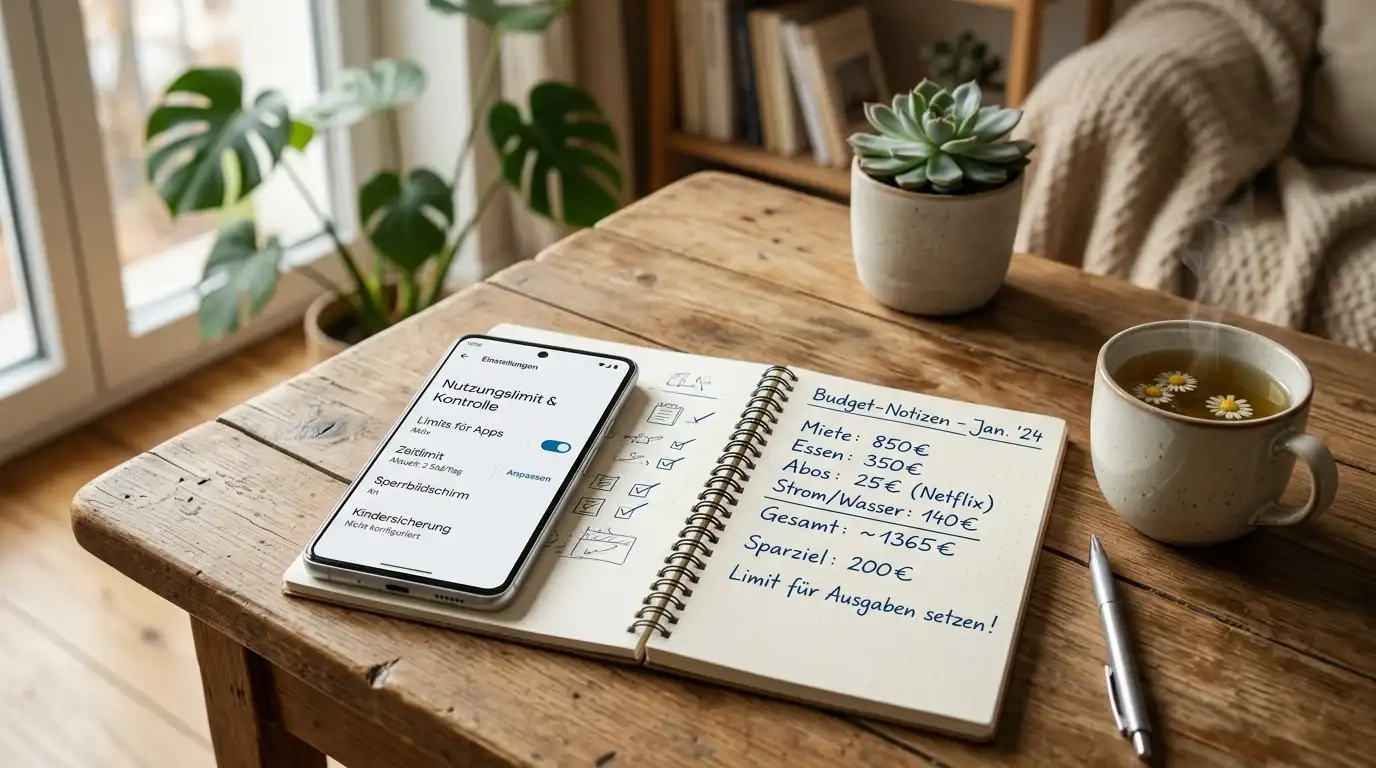 Einstellungen
Nutzungslimit &
Kontrolle
Limits für Apps
Aktiv
Zeitlimit
Aktuell: 2 Std/Tag
Anpassen
Sperrbildschirm
An
Kindersicherung
Nicht konfiguriert
Budget-Notizen - Jan. '24
Miete: 850€
Essen: 350€
Abos: 25€ (Netflix)
Strom/Wasser: 140€
Gesamt: ~1365€
Sparziel: 200€
Limit für Ausgaben setzen!